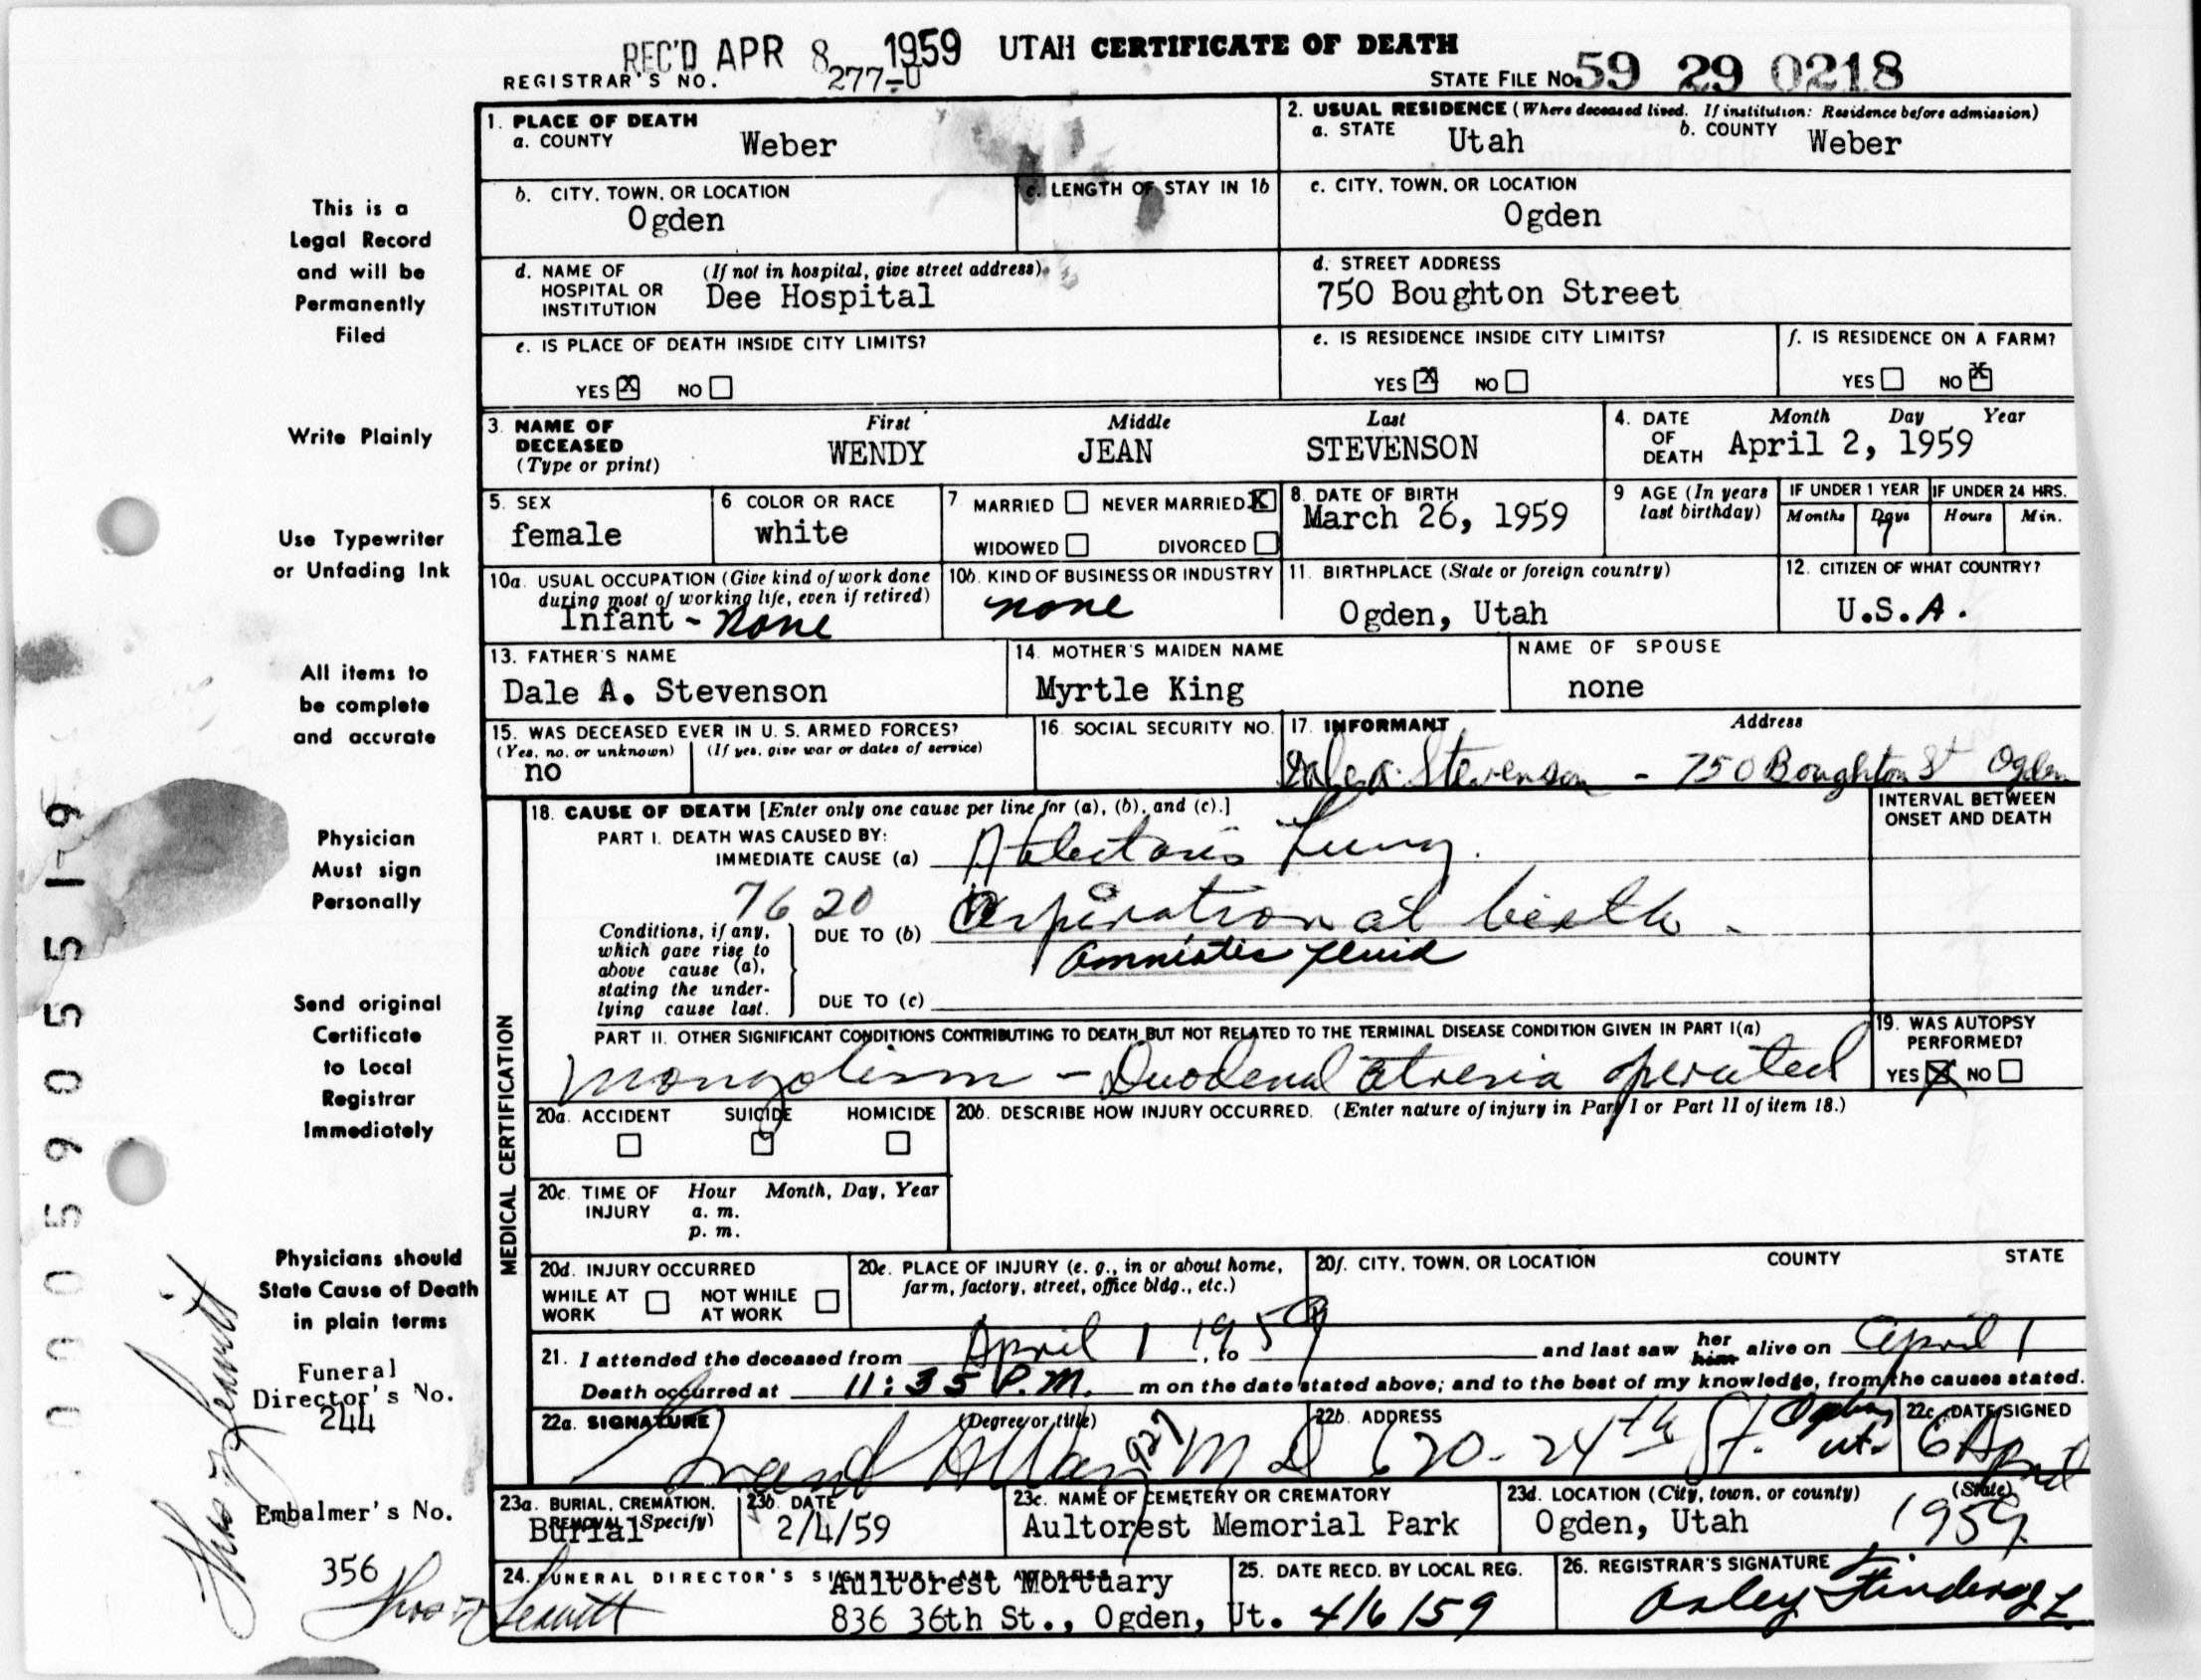 REC'D APR 8 1959 UTAH CERTIFICATE OF DEATH
REGISTRAR'S NO. 277-U STATE FILE NO. 59 29 0218
1. PLACE OF DEATH
a. COUNTY Weber
2. USUAL RESIDENCE (Where deceased lived. If institution: Residence before admission)
a. STATE Utah b. COUNTY Weber
b. CITY, TOWN, OR LOCATION
Ogden
c. LENGTH OF STAY IN 1b
c. CITY, TOWN, OR LOCATION
Ogden
d. NAME OF HOSPITAL OR INSTITUTION (If not in hospital, give street address)
Dee Hospital
d. STREET ADDRESS
750 Boughton Street
e. IS PLACE OF DEATH INSIDE CITY LIMITS?
YES X NO
e. IS RESIDENCE INSIDE CITY LIMITS?
YES X NO
f. IS RESIDENCE ON A FARM?
YES NO X
3. NAME OF DECEASED (Type or print)
First Middle Last
WENDY JEAN STEVENSON
4. DATE OF DEATH Month Day Year
April 2, 1959
5. SEX
female
6 COLOR OR RACE
white
7 MARRIED NEVER MARRIED X
WIDOWED DIVORCED
8. DATE OF BIRTH
March 26, 1959
9 AGE (In years last birthday)
IF UNDER 1 YEAR IF UNDER 24 HRS.
Months Days Hours Min.
7
10a. USUAL OCCUPATION (Give kind of work done during most of working life, even if retired)
Infant - none
10b. KIND OF BUSINESS OR INDUSTRY
none
11. BIRTHPLACE (State or foreign country)
Ogden, Utah
12. CITIZEN OF WHAT COUNTRY?
U.S.A.
13. FATHER'S NAME
Dale A. Stevenson
14. MOTHER'S MAIDEN NAME
Myrtle King
NAME OF SPOUSE
none
15. WAS DECEASED EVER IN U. S. ARMED FORCES?
(Yes, no, or unknown) (If yes, give war or dates of service)
no
16. SOCIAL SECURITY NO.
17. INFORMANT Address
Dale A. Stevenson - 750 Boughton St Ogden
MEDICAL CERTIFICATION
18. CAUSE OF DEATH [Enter only one cause per line for (a), (b), and (c).]
INTERVAL BETWEEN ONSET AND DEATH
PART I. DEATH WAS CAUSED BY:
IMMEDIATE CAUSE (a) Atelectasis Lung.
7620
Conditions, if any, which gave rise to above cause (a), stating the underlying cause last.
DUE TO (b) Aspiration at birth.
amniotic fluid
DUE TO (c)
PART II. OTHER SIGNIFICANT CONDITIONS CONTRIBUTING TO DEATH BUT NOT RELATED TO THE TERMINAL DISEASE CONDITION GIVEN IN PART I(a)
Mongolism - Duodenal atresia operated
19. WAS AUTOPSY PERFORMED?
YES X NO
20a. ACCIDENT SUICIDE HOMICIDE
20b. DESCRIBE HOW INJURY OCCURRED. (Enter nature of injury in Part I or Part II of item 18.)
20c. TIME OF INJURY Hour Month, Day, Year
a. m.
p. m.
20d. INJURY OCCURRED
WHILE AT WORK NOT WHILE AT WORK
20e. PLACE OF INJURY (e. g., in or about home, farm, factory, street, office bldg., etc.)
20f. CITY, TOWN, OR LOCATION COUNTY STATE
21. I attended the deceased from April 1 1959, to and last saw her him alive on April 1
Death occurred at 11:35 P.M. m on the date stated above; and to the best of my knowledge, from the causes stated.
22a. SIGNATURE (Degree or title)
Grant M D
22b. ADDRESS
620 - 24th St. Ogden ut.
22c. DATE SIGNED
6 April 1959
23a. BURIAL, CREMATION, REMOVAL (Specify)
Burial
23b. DATE
2/4/59
23c. NAME OF CEMETERY OR CREMATORY
Aultorest Memorial Park
23d. LOCATION (City, town, or county) (State)
Ogden, Utah
24. FUNERAL DIRECTOR'S SIGNATURE AND ADDRESS
Aultorest Mortuary
836 36th St., Ogden, Ut.
25. DATE RECD. BY LOCAL REG.
4/6/59
26. REGISTRAR'S SIGNATURE
This is a
Legal Record
and will be
Permanently
Filed
Write Plainly
Use Typewriter
or Unfading Ink
All items to
be complete
and accurate
Physician
Must sign
Personally
Send original
Certificate
to Local
Registrar
Immediately
Physicians should
State Cause of Death
in plain terms
Funeral
Director's No.
244
Embalmer's No.
356